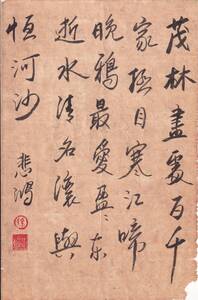 茂林盡處百千
家極目寒江啼
晚鴉最愛盈〻東
逝水清名瀼與
恒河沙
悲鴻